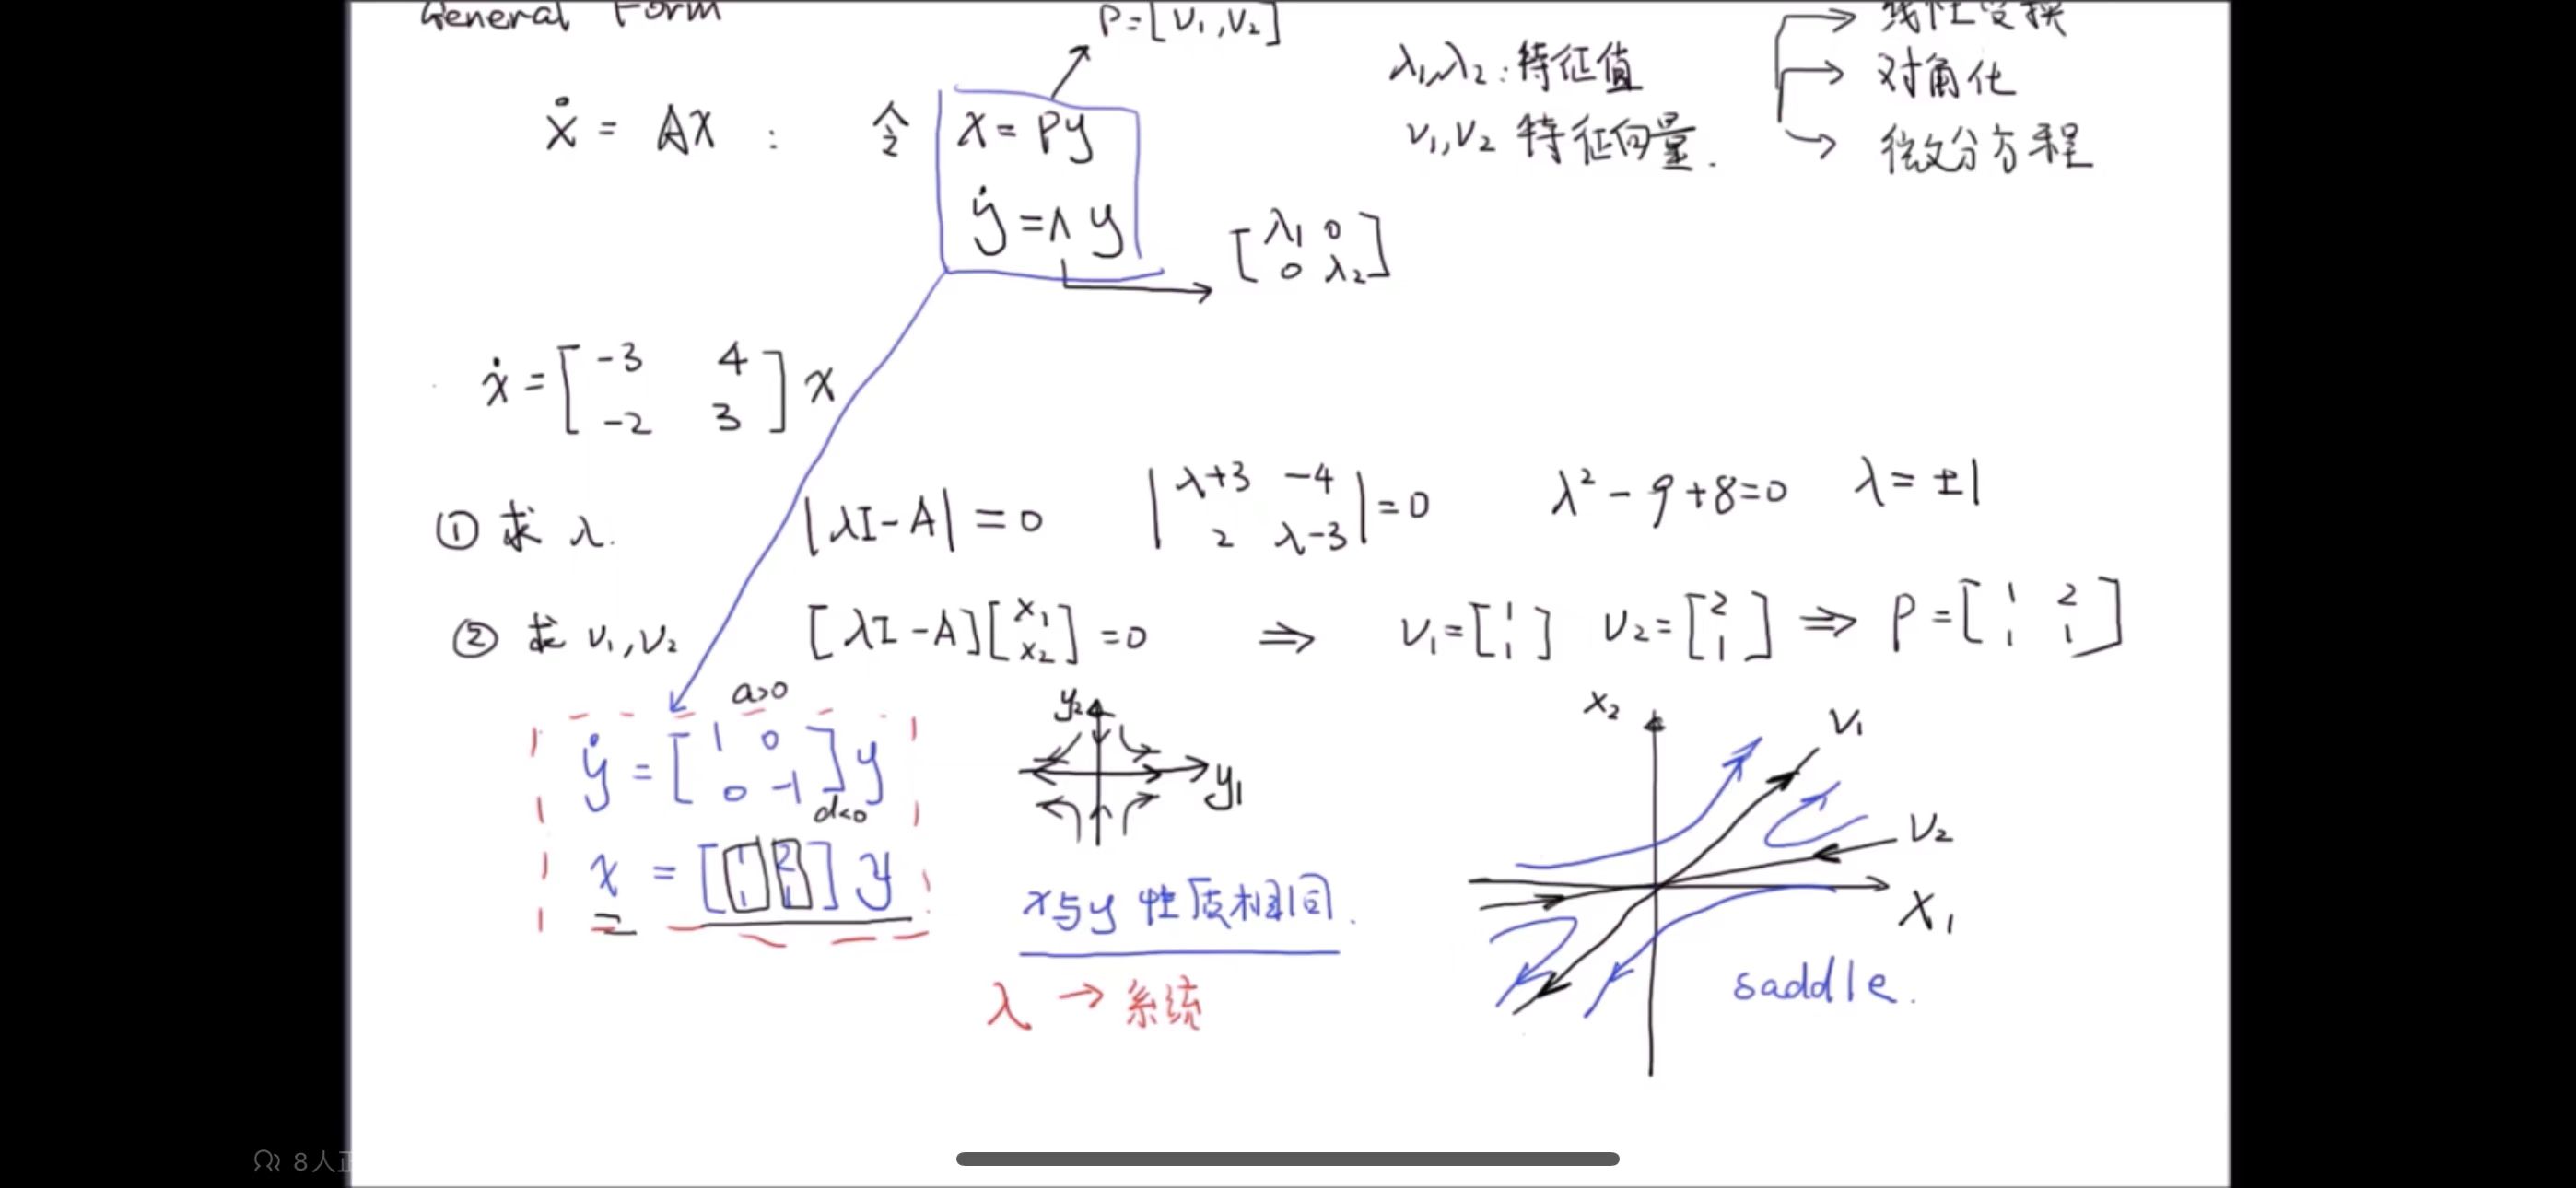 General Form
P=[v₁,v₂]
λ₁,λ₂:特征值
v₁,v₂ 特征向量.
线性变换
对角化
微分方程
ẋ = AX : 令 X = Py
ẏ = Λ y
[λ₁ 0
0 λ₂]
ẋ = [-3 4
-2 3] x
① 求 λ. |λI-A| = 0 |λ+3 -4
2 λ-3| = 0 λ²-9+8=0 λ=±1
② 求 v₁,v₂ [λI-A][x₁
x₂] =0 ⇒ v₁=[1
1] v₂=[2
1] ⇒ P=[1 2
1 1]
a>0
ẏ = [1 0
0 -1] y
d<0
x = [1 2
1 1] y
y₂
y₁
x与y 性质相同.
λ → 系统
x₂
v₁
v₂
X₁
saddle.
8人正